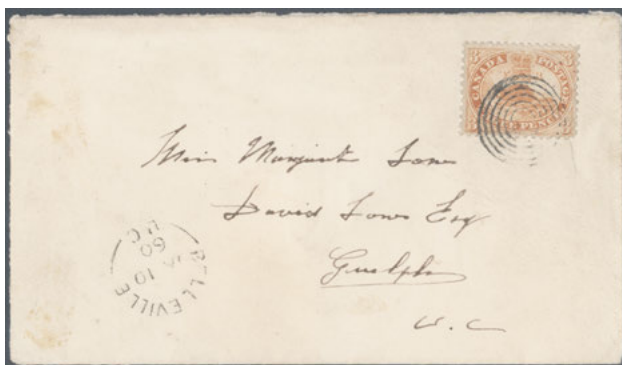 CANADA POSTAGE
Miss Margaret
David Esq
Guelph
U.C
BELLEVILLE
10
60
U.C